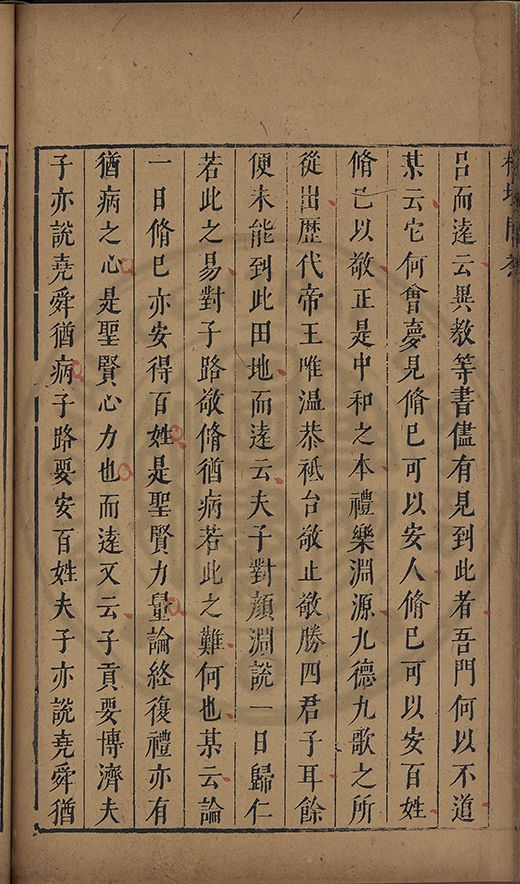 呂而逵云異教等書儘有見到此者吾門何以不道
某云它何曾夢見脩巳可以安人脩巳可以安百姓
脩己以敬正是中和之本禮樂淵源九德九歌之所
從出歷代帝王唯温恭祗台敬止敬勝四君子耳餘
便未能到此田地而逵云夫子對顔淵說一日歸仁
若此之易對子路敬脩猶病若此之難何也某云論
一日脩巳亦安得百姓是聖賢力量論終復禮亦有
猶病之心是聖賢心力也而逵又云子貢要博濟夫
子亦說堯舜猶病子路要安百姓夫子亦說堯舜猶